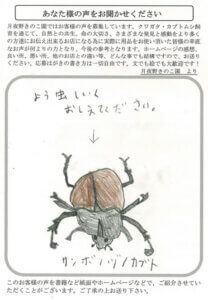 あなた様の声をお聞かせください
月夜野きのこ園ではお客様の声を募集しています。クワガタ・カブトムシ飼
育を通じて、自然との共生、命の大切さ、さまざまな発見と感動をより多く
の方達にお伝え出来るお店になる為に実際に商品をお使い頂いた皆様の率直
なお声が何よりの力となり、今後の参考となります。ホームページの感想、
良い所、悪い所、他のお店との違い等、どんな事でも結構ですので、お送り
ください。応募はがきの書き方は一切自由です。文でも絵でも大歓迎です！
月夜野きのこ園　より
よう虫しいく
おしえてください。
↓
カブト
このお客様の声を書籍など紙面やホームページなどで、ご紹介させてい
ただくことがございます。ご了承の上お送り下さい。